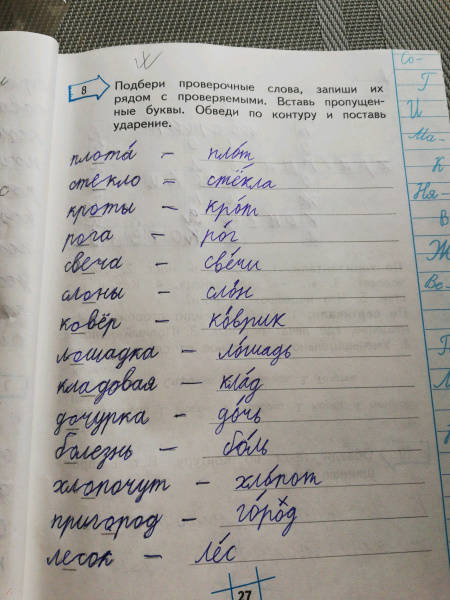 8
Подбери проверочные слова, запиши их
рядом с проверяемыми. Вставь пропущен-
ные буквы. Обведи по контуру и поставь
ударение.
плота́ – пло́т
стекло – стёкла
кроты – кро́т
рога – ро́г
свеча – све́чи
слоны – сло́н
ковёр – ко́врик
лошадка – ло́шадь
кладовая – кла́д
дочурка – до́чь
болезнь – бо́ль
хлопочут – хло́пот
пригород – го́род
лесок – ле́с
27
Со-
Г
И
Ма-
К
Ня-
В
Ж
Во-